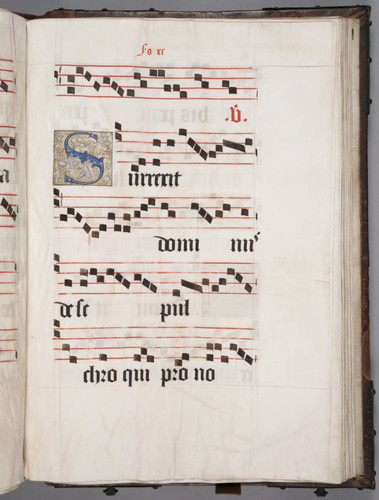 fo xc
.v.
Surrexit
domi nus
de se pul
chro qui pro no